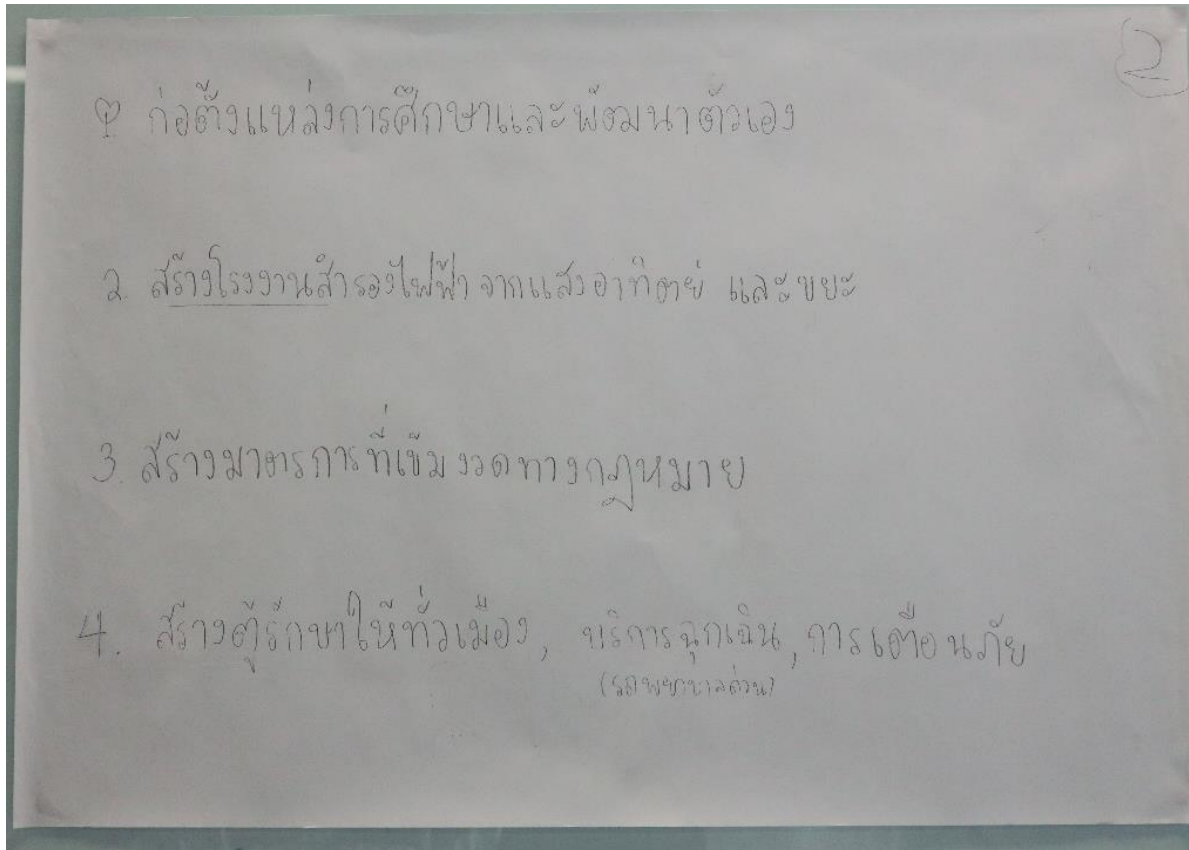 2
ก่อตั้งแหล่งการศึกษาและพัฒนาตัวเอง
2. สร้างโรงงานสำรองไฟฟ้า จากแสงอาทิตย์ และขยะ
3. สร้างมาตรการที่เข้มงวดทางกฎหมาย
4. สร้างตู้รักษาให้ทั่วเมือง, บริการฉุกเฉิน, การเตือนภัย
(รถพยาบาลด่วน)